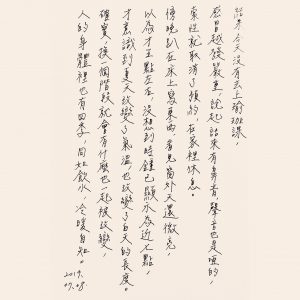 結果今天沒有去上瑜珈課，
感冒越發嚴重，說起話來有鼻音，聲音也是啞的，
索性就取消了預約，在家裡休息。
傍晚趴在床上寫東西，看見窗外天還微亮，
以為才五點左右，沒想到時鐘已顯示為近七點，
才意識到夏天改變了氣溫，也改變了白天的長度。
確實，換個階段就會有什麼也一起被改變，
人的身體裡也有四季，同如飲水，冷暖自知。
2019.
07.08